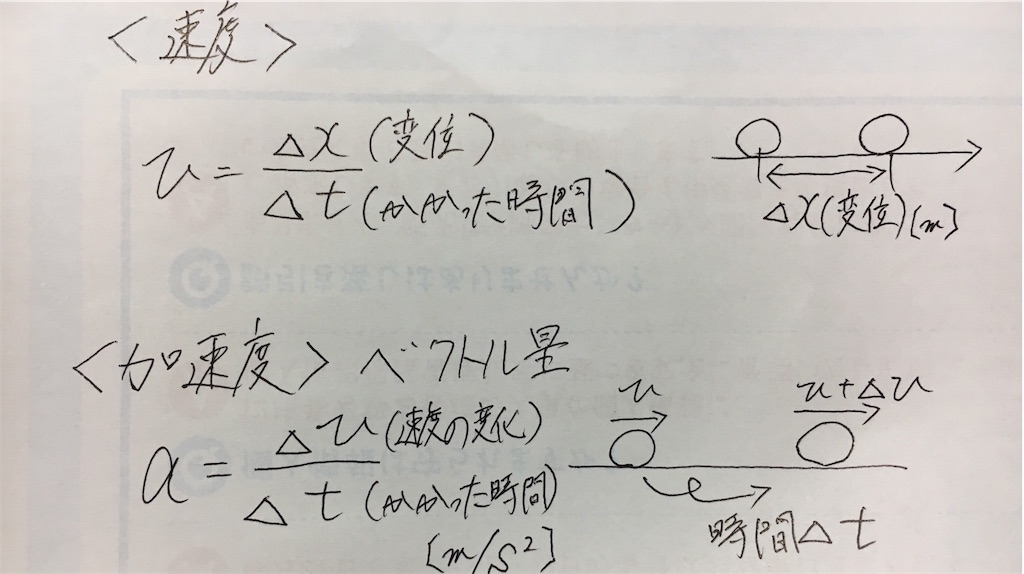 <速度>
v = Δx (変位)
Δt (かかった時間)
Δx(変位)[m]
<加速度> ベクトル量
a = Δv (速度の変化)
Δt (かかった時間)
[m/s²]
v
v+Δv
時間Δt